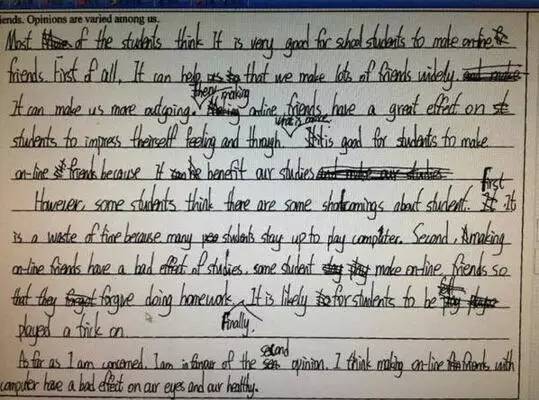 iends. Opinions are varied among us.
Most of the students think It is very good for school students to make on-line
friends. First of all, It can help that we make lots of friends widely.
It can make us more outgoing. then making on-line friends have a great effect on
students to impress theirself feeling and through. what's more It is good for students to make
on-line friends because It benefit our studies
However, some students think there are some shortcomings about student. First It
is a waste of time because many students stay up to play computer. Second, making
on-line friends have a bad effect of studies, some student make on-line friends so
that they forgive doing homework. Finally. It is likely for students to be
played a trick on.
As far as I am concerned, I am in favour of the second opinion. I think making on-line friends with
computer have a bad effect on our eyes and our healthy.